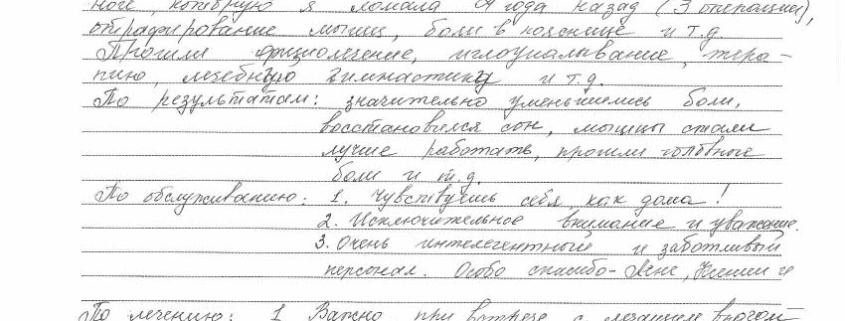 ноге, которую я ломала 4 года назад (3 операции),
атрофирование мышц, боли в пояснице и т.д.
Прошли физиолечение, иглоукалывание, тера-
пию, лечебную гимнастику и т.д.
По результатам: значительно уменьшились боли,
восстановился сон, мышцы стали
лучше работать, прошли головные
боли и т.д.
По обслуживанию: 1. Чувствуешь себя, как дома!
2. Исключительное внимание и уважение.
3. Очень интелегентный и заботливый
персонал. Особо спасибо - Лене, Ксении и
По лечению: 1 Важно при встрече с лечащим врачом